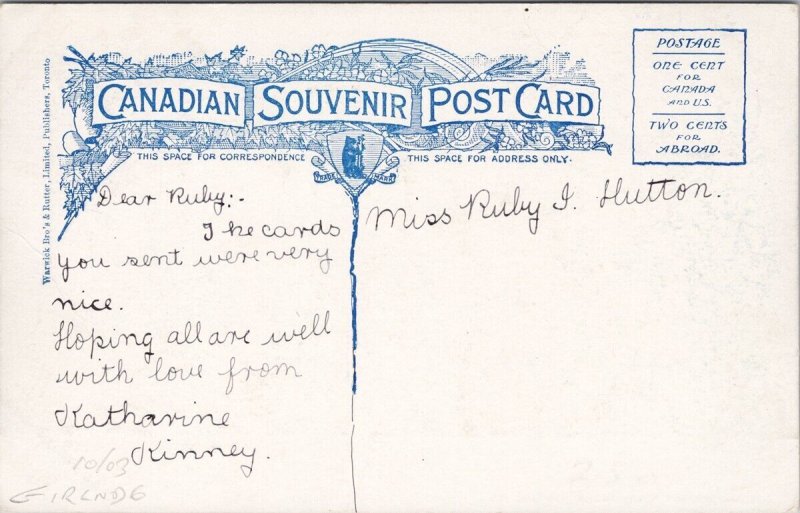 CANADIAN SOUVENIR POST CARD
POSTAGE
ONE CENT
FOR
CANADA
AND U.S.
TWO CENTS
FOR
ABROAD.
Warwick Bro's & Rutter, Limited, Publishers, Toronto
THIS SPACE FOR CORRESPONDENCE
THIS SPACE FOR ADDRESS ONLY.
TRADE MARK
Dear Ruby:-
The cards
you sent were very
nice.
Hoping all are well
with love from
Katharine
Kinney.
10/03
Miss Ruby I. Hutton.